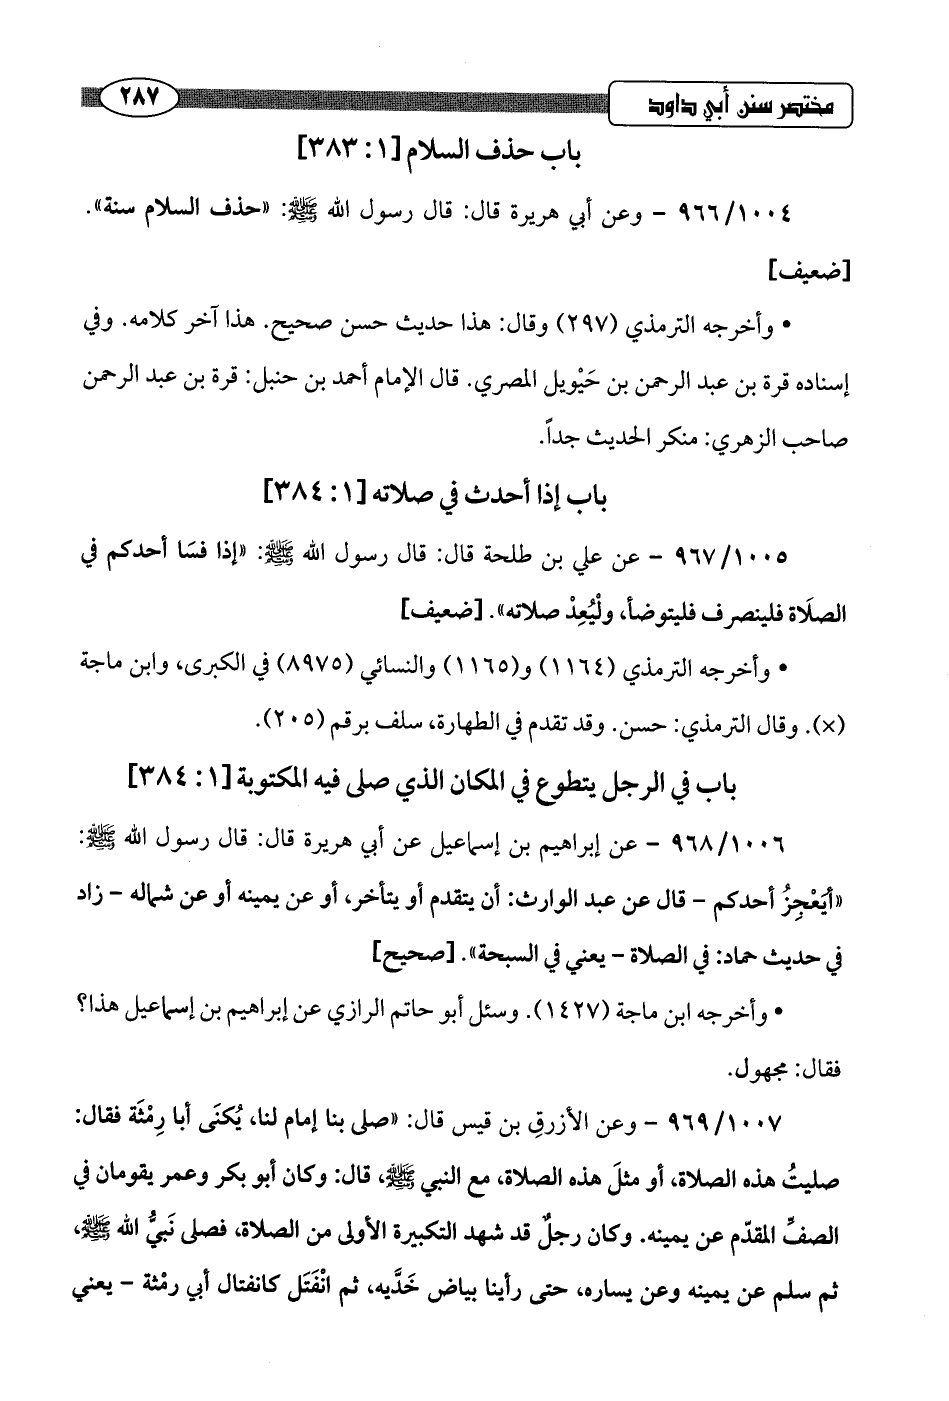 مختصر سنن أبي داود ٢٨٧
باب حذف السلام [١: ٣٨٣]
٩٦٦/١٠٠٤ - وعن أبي هريرة قال: قال رسول الله ﷺ: «حذف السلام سنة».
[ضعيف]
• وأخرجه الترمذي (٢٩٧) وقال: هذا حديث حسن صحيح. هذا آخر كلامه. وفي
إسناده قرة بن عبد الرحمن بن حَيْويل المصري. قال الإمام أحمد بن حنبل: قرة بن عبد الرحمن
صاحب الزهري: منكر الحديث جداً.
باب إذا أحدث في صلاته [١: ٣٨٤]
٩٦٧/١٠٠٥ - عن علي بن طلحة قال: قال رسول الله ﷺ: «إذا فسَا أحدكم في
الصلَاة فلينصرف فليتوضأ، ولْيُعِدْ صلاته». [ضعيف]
• وأخرجه الترمذي (١١٦٤) و(١١٦٥) والنسائي (٨٩٧٥) في الكبرى، وابن ماجة
(×). وقال الترمذي: حسن. وقد تقدم في الطهارة، سلف برقم (٢٠٥).
باب في الرجل يتطوع في المكان الذي صلى فيه المكتوبة [١: ٣٨٤]
٩٦٨/١٠٠٦ - عن إبراهيم بن إسماعيل عن أبي هريرة قال: قال رسول الله ﷺ:
«أيَعْجِزُ أحدكم - قال عن عبد الوارث: أن يتقدم أو يتأخر، أو عن يمينه أو عن شماله - زاد
في حديث حماد: في الصلاة - يعني في السبحة». [صحيح]
• وأخرجه ابن ماجة (١٤٢٧). وسئل أبو حاتم الرازي عن إبراهيم بن إسماعيل هذا؟
فقال: مجهول.
٩٦٩/١٠٠٧ - وعن الأزرق بن قيس قال: «صلى بنا إمام لنا، يُكنَى أبا رِمْثَة فقال:
صليتُ هذه الصلاة، أو مثلَ هذه الصلاة، مع النبي ﷺ، قال: وكان أبو بكر وعمر يقومان في
الصفِّ المقدّم عن يمينه. وكان رجلٌ قد شهد التكبيرة الأولى من الصلاة، فصلى نَبيُّ الله ﷺ،
ثم سلم عن يمينه وعن يساره، حتى رأينا بياض خَدَّيه، ثم انْفَتَل كانفتال أبي رمْثة - يعني